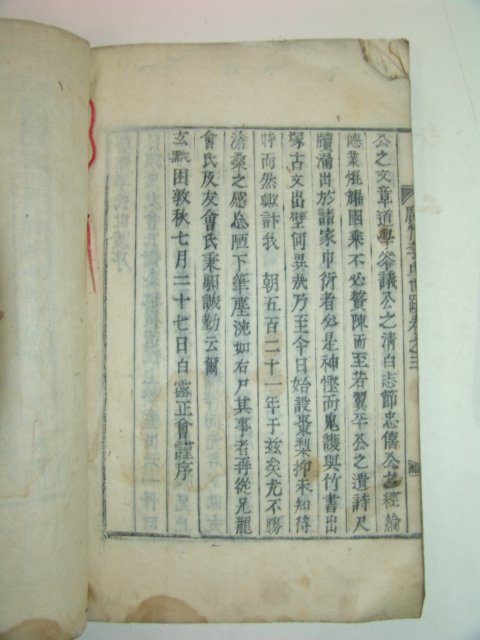 公之文章道學參議公之清白志節忠僖公之經綸
德業焜耀國乘不必贅陳而至若翼平公之遺詩尺
牘湧出於諸家巾衍者必是神慳而鬼護與竹書出
塚古文出壁何異哉乃至今日始設棗梨抑未知待
時而然歟訃我 朝五百二十一年于玆矣尤不勝
滄桑之感忘陋下筆應洗如右尸其事者再從兄龍
會氏及友會氏秉顯誠勤云爾
玄黓困敦秋七月二十七日白露正會謹序
李氏世蹟卷之三